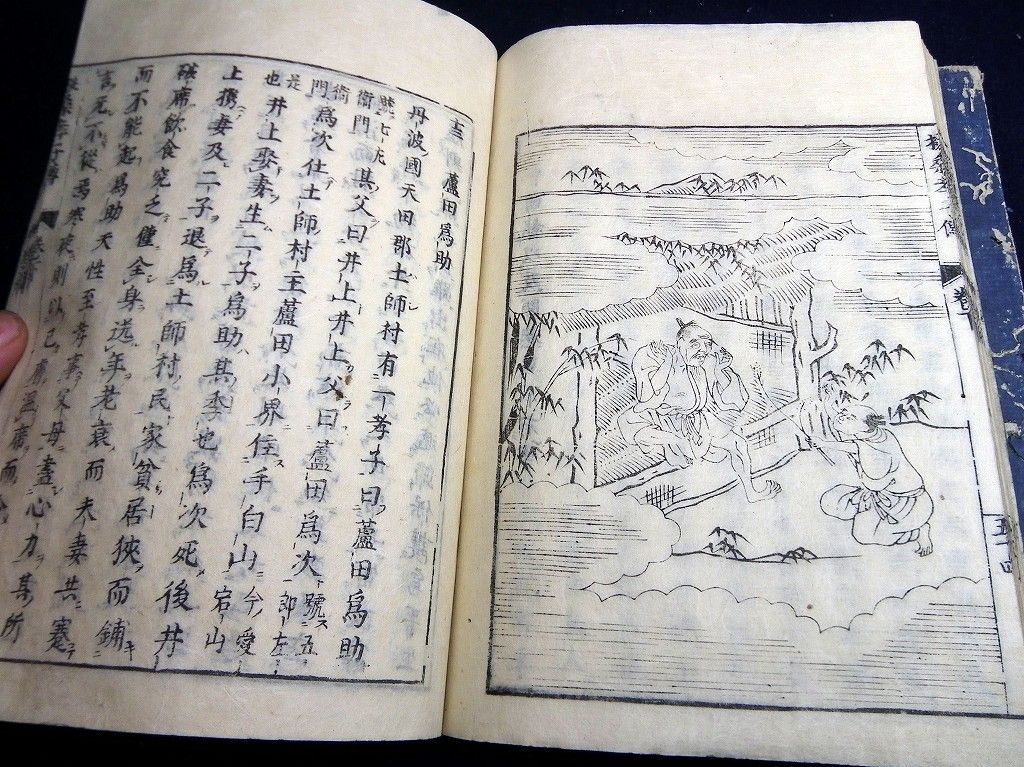 蘆田爲助
丹波國天田郡土師村有二孝子曰蘆田爲助
號七左衛門其父曰井上井上父曰蘆田爲次號五郎左
衛門爲次仕土師村主蘆田小界住于白山今愛宕山
是也井上娶妻生二子爲助其季也爲次死後井
上携妻及二子退爲土師村民家貧居狹而鋪
席飲食乏僅全身迄年老衰而夫妻共蹇
而不能起爲助天性至孝事父母盡心力其所
言死不從寒夜則以己膚溫席而
孝子傳
卷
五十四